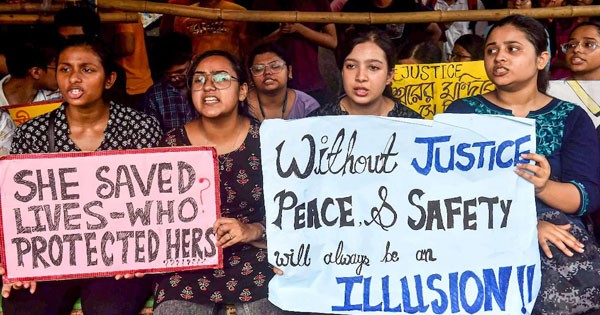 SHE SAVED
LIVES-WHO
PROTECTED HERS?
Without JUSTICE
PEACE, & SAFETY
will always be an
ILLUSION!!
JUSTICE